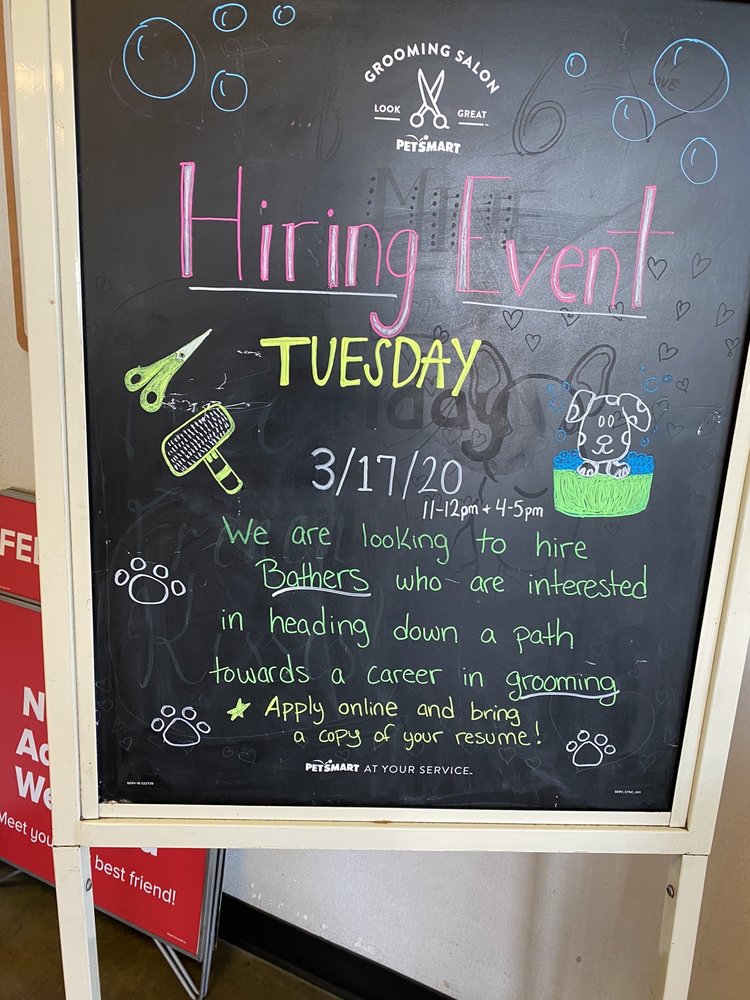 GROOMING SALON
LOOK GREAT
PETSMART
Hiring Event
TUESDAY
3/17/20
11-12pm + 4-5pm
We are looking to hire
Bathers who are interested
in heading down a path
towards a career in grooming
Apply online and bring
a copy of your resume!
PETSMART AT YOUR SERVICE
FEL
N
Ad
We
Meet you
best friend!